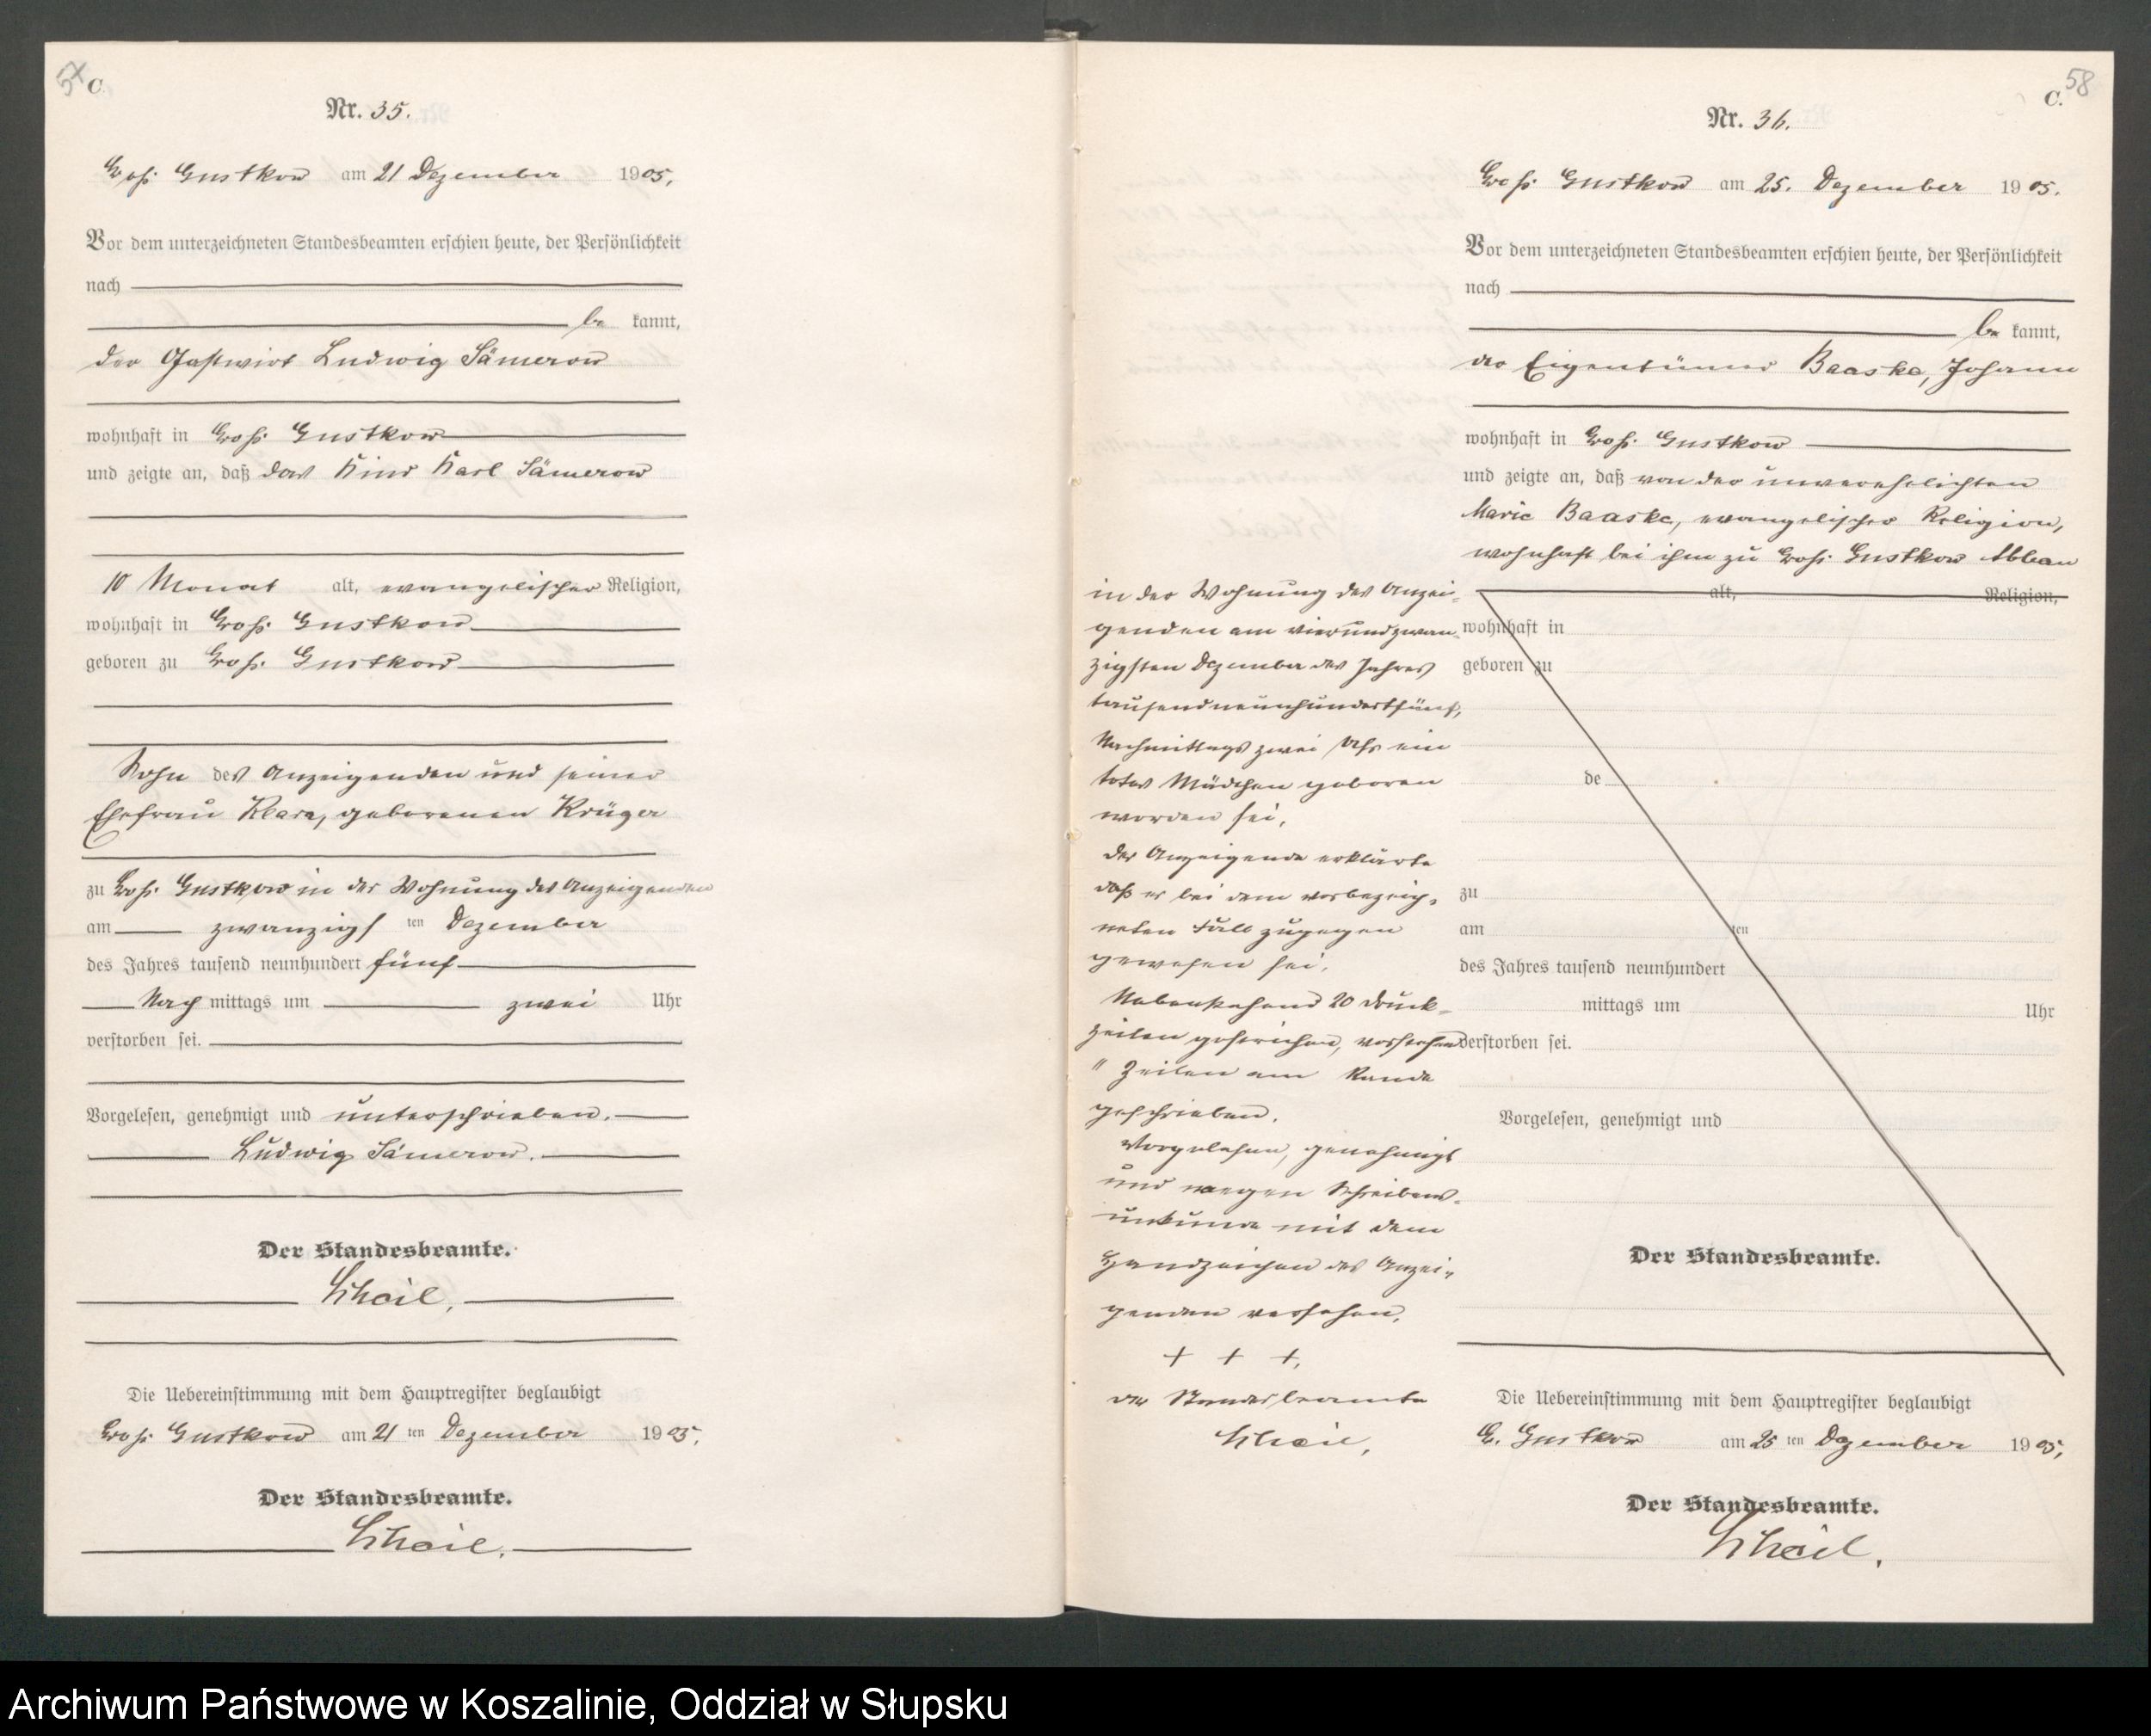 57
C.
Nr. 35.
Groß Gustkow am 21 Dezember 1905,
Vor dem unterzeichneten Standesbeamten erschien heute, der Persönlichkeit
nach
be kannt,
der Gastwirt Ludwig Sämerow
wohnhaft in Groß Gustkow
und zeigte an, daß das Kind Karl Sämerow
10 Monat alt, evangelischer Religion,
wohnhaft in Groß Gustkow
geboren zu Groß Gustkow
Sohn des Anzeigenden und seiner
Ehefrau Klara, geborenen Krüger
zu Groß Gustkow in der Wohnung des Anzeigenden
am zwanzigs ten Dezember
des Jahres tausend neunhundert fünf
Nach mittags um zwei Uhr
verstorben sei.
Vorgelesen, genehmigt und unterschrieben.
Ludwig Sämerow.
Der Standesbeamte.
Scheil.
Die Uebereinstimmung mit dem Hauptregister beglaubigt
Groß Gustkow am 21 ten Dezember 1905.
Der Standesbeamte.
Scheil.
58
C.
Nr. 36.
Groß Gustkow am 25. Dezember 1905.
Vor dem unterzeichneten Standesbeamten erschien heute, der Persönlichkeit
nach
be kannt,
der Eigentümer Baaske, Johann
wohnhaft in Groß Gustkow
und zeigte an, daß von der unverehelichten
Marie Baaske, evangelischer Religion,
wohnhaft bei ihm zu Groß Gustkow Abbau
in der Wohnung des Anzei-
genden am vierundzwan-
zigsten Dezember des Jahres
tausendneunhundertfünf,
Nachmittags zwei Uhr ein
totes Mädchen geboren
worden sei.
Der Anzeigende erklärte
daß er bei dem vorbezeich-
neten Fall zugegen
gewesen sei.
Nebenstehend 20 Druck-
zeilen gestrichen, vorstehend
11 Zeilen am Rande
geschrieben.
Vorgelesen, genehmigt
und wegen Schreibens-
unkunde mit dem
Handzeichen des Anzei-
genden versehen.
+ + +.
Der Standesbeamte
Scheil.
alt, Religion,
wohnhaft in
geboren zu
de
zu
am ten
des Jahres tausend neunhundert
mittags um Uhr
verstorben sei.
Vorgelesen, genehmigt und
Der Standesbeamte.
Die Uebereinstimmung mit dem Hauptregister beglaubigt
G. Gustkow am 25 ten Dezember 1905,
Der Standesbeamte.
Scheil.
Archiwum Państwowe w Koszalinie, Oddział w Słupsku